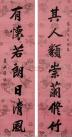 其人類崇蘭脩竹
有懷若朗日清風